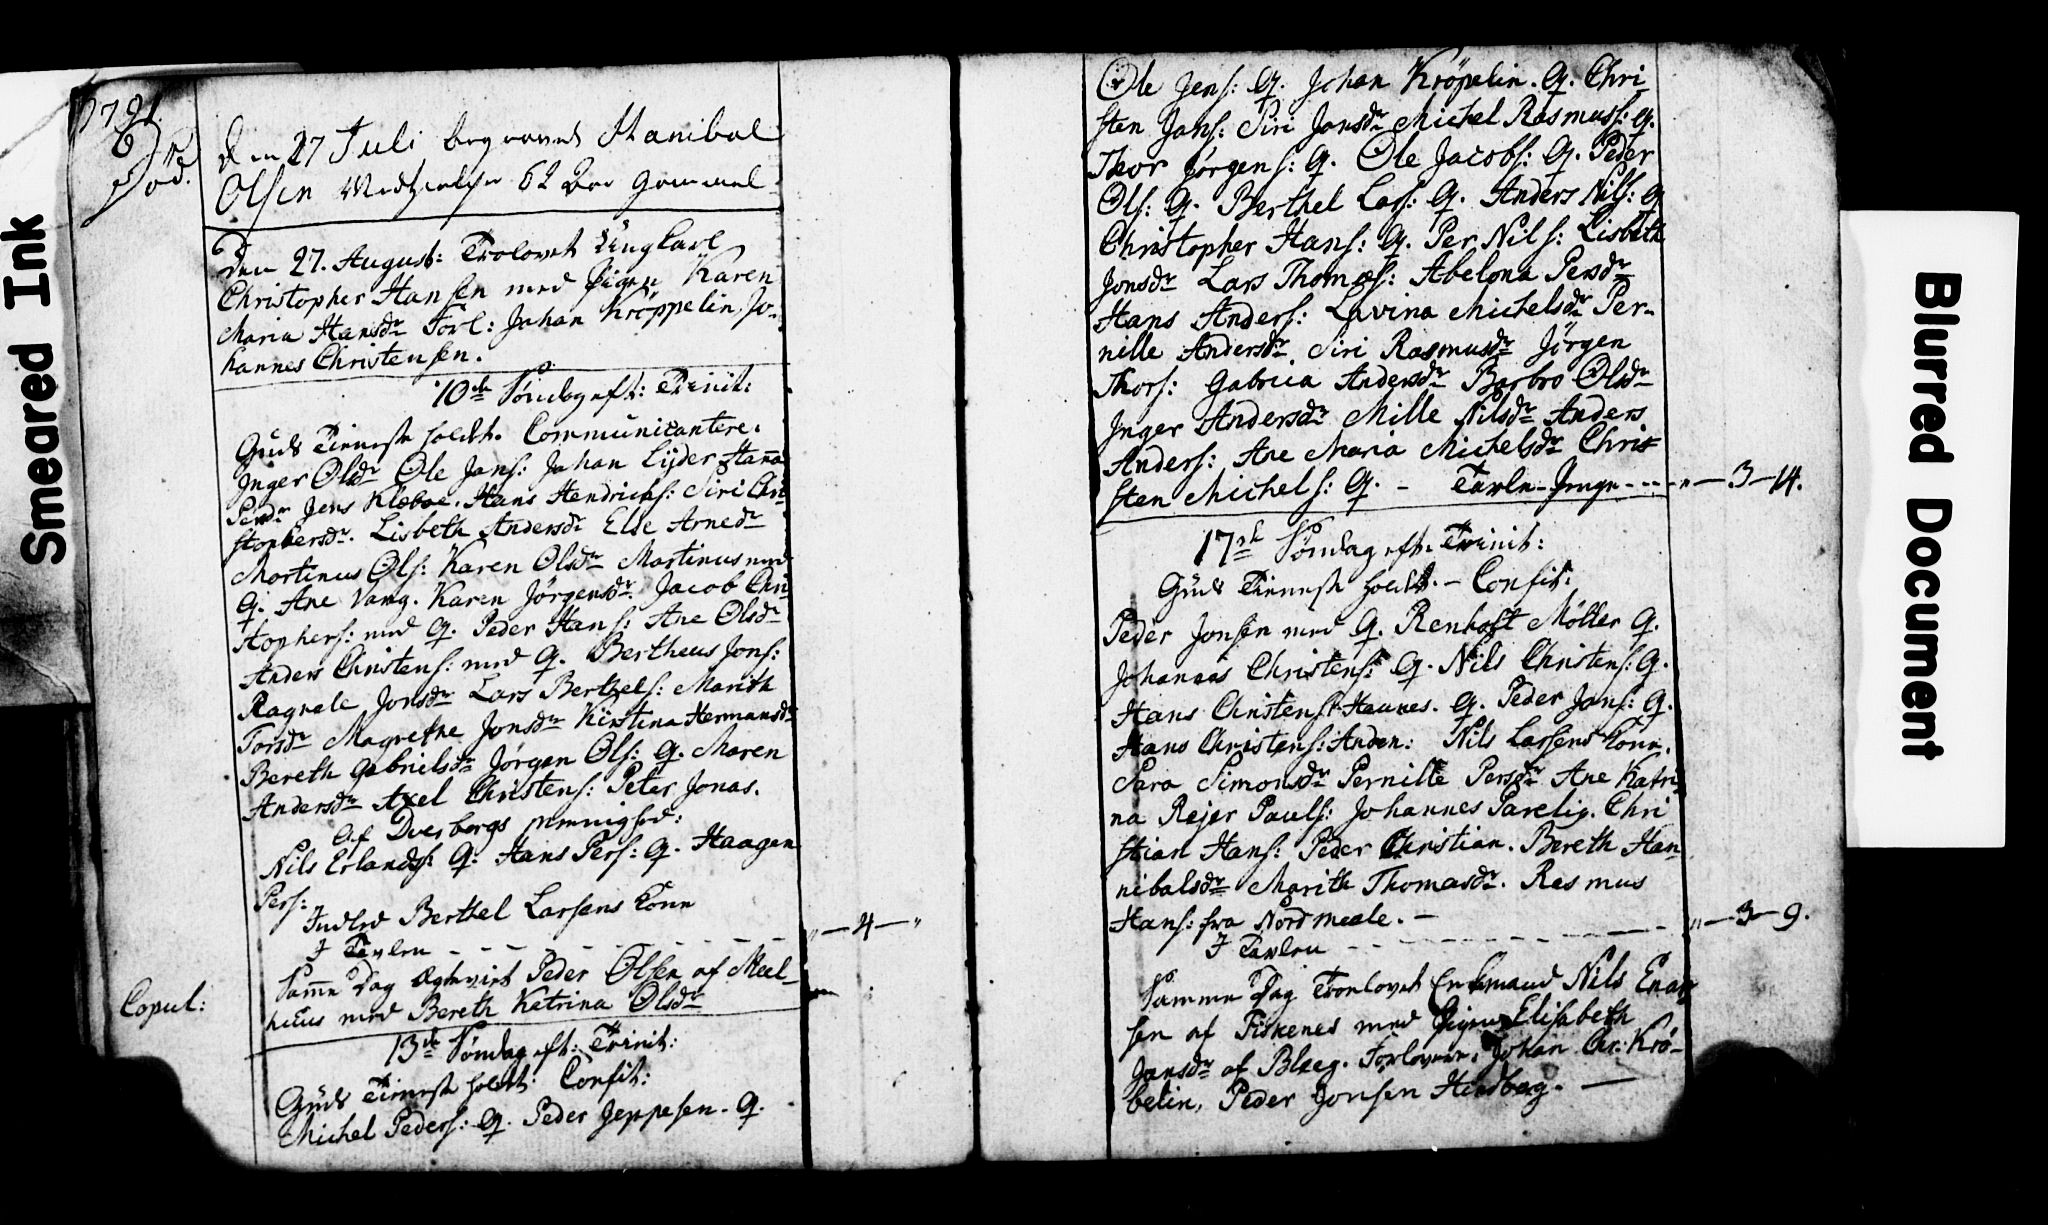 Smeared Ink
1791.
6
Død.
den 27 Juli begravet Hanibal
Olsen 62 Aar gammel
Den 27. August: Trolovet Ungkarl
Christopher Hansen med Pigen Karen
Maria Hansdr Forl: Johan Kröppelin, Jo-
hannes Christensen.
10de Søndag eft: Trinit:
Guds Tieneste holdt. Communicantere.
Inger Olsdr Ole Jans: Johan Lijder Hana
Persdr Jens Kleboe. Hans Hendrichs: Siri Chri
stophersdr. Lisbeth Andersdr Else Arnedr
Mortinus Ols: Karen Olsdr Martinus med
Q. Ane Vang. Karen Jørgensdr. Jacob Chri
stophers: med Q. Peder Hans: Ane Olsdr
Anders Christens: med Q. Bertheus Jons:
Ragnele Jonsdr Lars Berthels: Marith
Torsdr Magrethe Jonsdr Kirstina Hermansdr
Bereth Gabrielsdr Jørgen Ols: Q. Maren
Andersdr Axel Christens: Peter Jonas.
Af Dverbergs meenighed:
Nils Erlands: Q: Hans Pers: Q. Haagen
Pers:
Indled Berthel Larsens Kone
I Tavlen - - - - - - - - „—4—„
Samme Dag Egteviet Peder Olsen af Meel-
huus med Bereth Katrina Olsdr
Copul:
13de Søndag eft: Trinit:
Guds Tieneste holdt. Confit:
Michel Peders: Q. Peder Jeppesen. Q.
Ole Jens: Q. Johan Kröpelin. Q. Chri
sten Jans: Siri Jonsdr Michel Rasmuss: Q.
Thor Jørgens: Q. Ole Jacobs: Q. Peder
Ols: Q. Berthel Lars: Q. Anders Nils: Q
Christopher Hans: Q. Per Nils: Lisbeth
Jonsdr Lars Thomæs: Abelona Persdr
Hans Anders: Lavina Michelsdr Per-
nille Andersdr. Siri Rasmusdr Jörgen
Thors: Gabrica Andersdr Barbro Olsdr
Inger Andersdr Mille Nilsdr Anders
Anders: Ane Maria Michelsdr Chri
sten Michels: Q. - Tavle-Penge - - - - „—3—14.
17de Søndag eft: Trinit:
Guds Tieneste holdt. - Confit:
Peder Jonsen med Q. Renholt Möller Q.
Johannes Christens: Q. Nils Christens: Q.
Hans Christens: Haunes. Q. Peder Jans: Q.
Hans Christens: Anden: Nils Larsens Kone.
Sara Simonsdr Pernille Persdr Ane Katri
na Rejer Pauls: Johannes Parelig. Chri
stian Hans: Peder Christian. Bereth Han
nibalsdr Marith Thomasdr. Rasmus
Hans: fra Nordmeele. -
I Tavlen - - - - - - - - „—3—9.
Samme Dag Troelovet Enkemand Nils Enar
sen af Fiskenes med Pigen Elisabeth
Jansdr af Bleeg. Forlovere: Johan Chr: Krö-
belin, Peder Jonsen Hindberg. —
Blurred Document